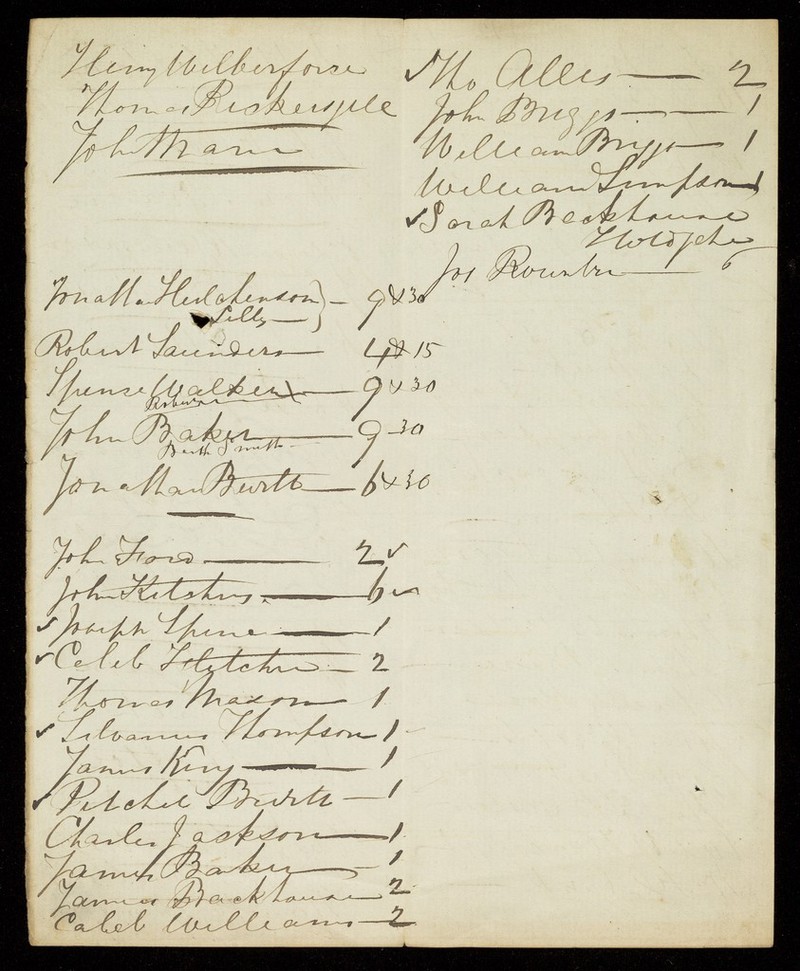 Henry Wilberforce
Thomas
John Mann
Jonathan Hutchenson } — 9 & 30
Lilly —
Robert Saunders — 4 & 15
Spence Walker — 9 & 30
John Baker — 9 - 30
Smith
Jonathan Burtt — 6 & 30
John Ford — 2 ✓
John Kitching — 6 ✓
✓ Joseph Spence — 1
✓ Caleb Fletcher — 2
Thomas Maxon — 1
✓ Silvanus Thompson 1
James King — 1
✓ Pitchel Burtt — 1
Charles Jackson — 1
James Baker — 1
James Backhouse 2
Caleb Williams — 2
✓ Tho Allis — 2
John Briggs — 1
William Briggs — 1
William Simpson 1
✓ Sarah Backhouse
Holdgate
Jos Rowntree — 6